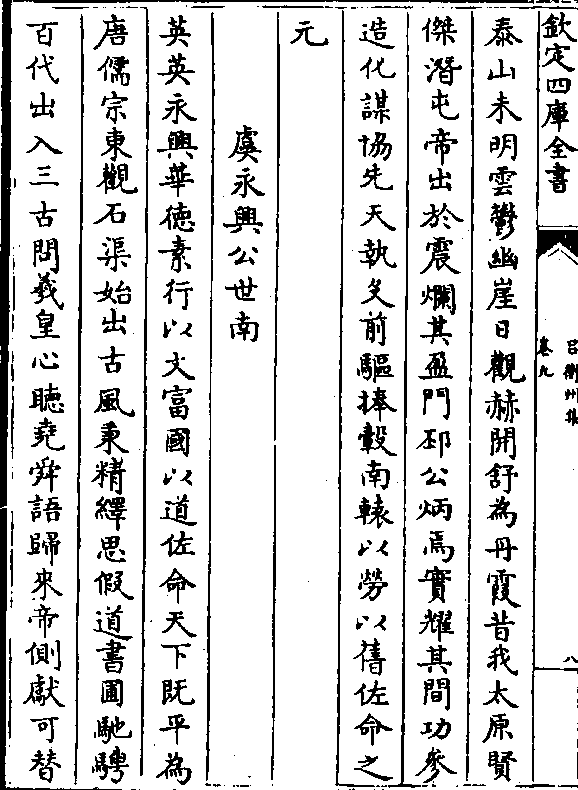 欽定四庫全書
呂衡州集
卷九
八
泰山未明雲鬱幽崖日觀赫開舒為丹霞昔我太原賢
傑潛屯帝出於震爛其盈門邳公炳焉實耀其間功參
造化謀協先天執殳前驅捧轂南轅以勞以禧佐命之
元
虞永興公世南
英英永興華德素行以文富國以道佐命天下既平為
唐儒宗東觀石渠始出古風秉精繹思假道書圃馳騁
百代出入三古問羲皇心聽堯舜語歸來帝側獻可替